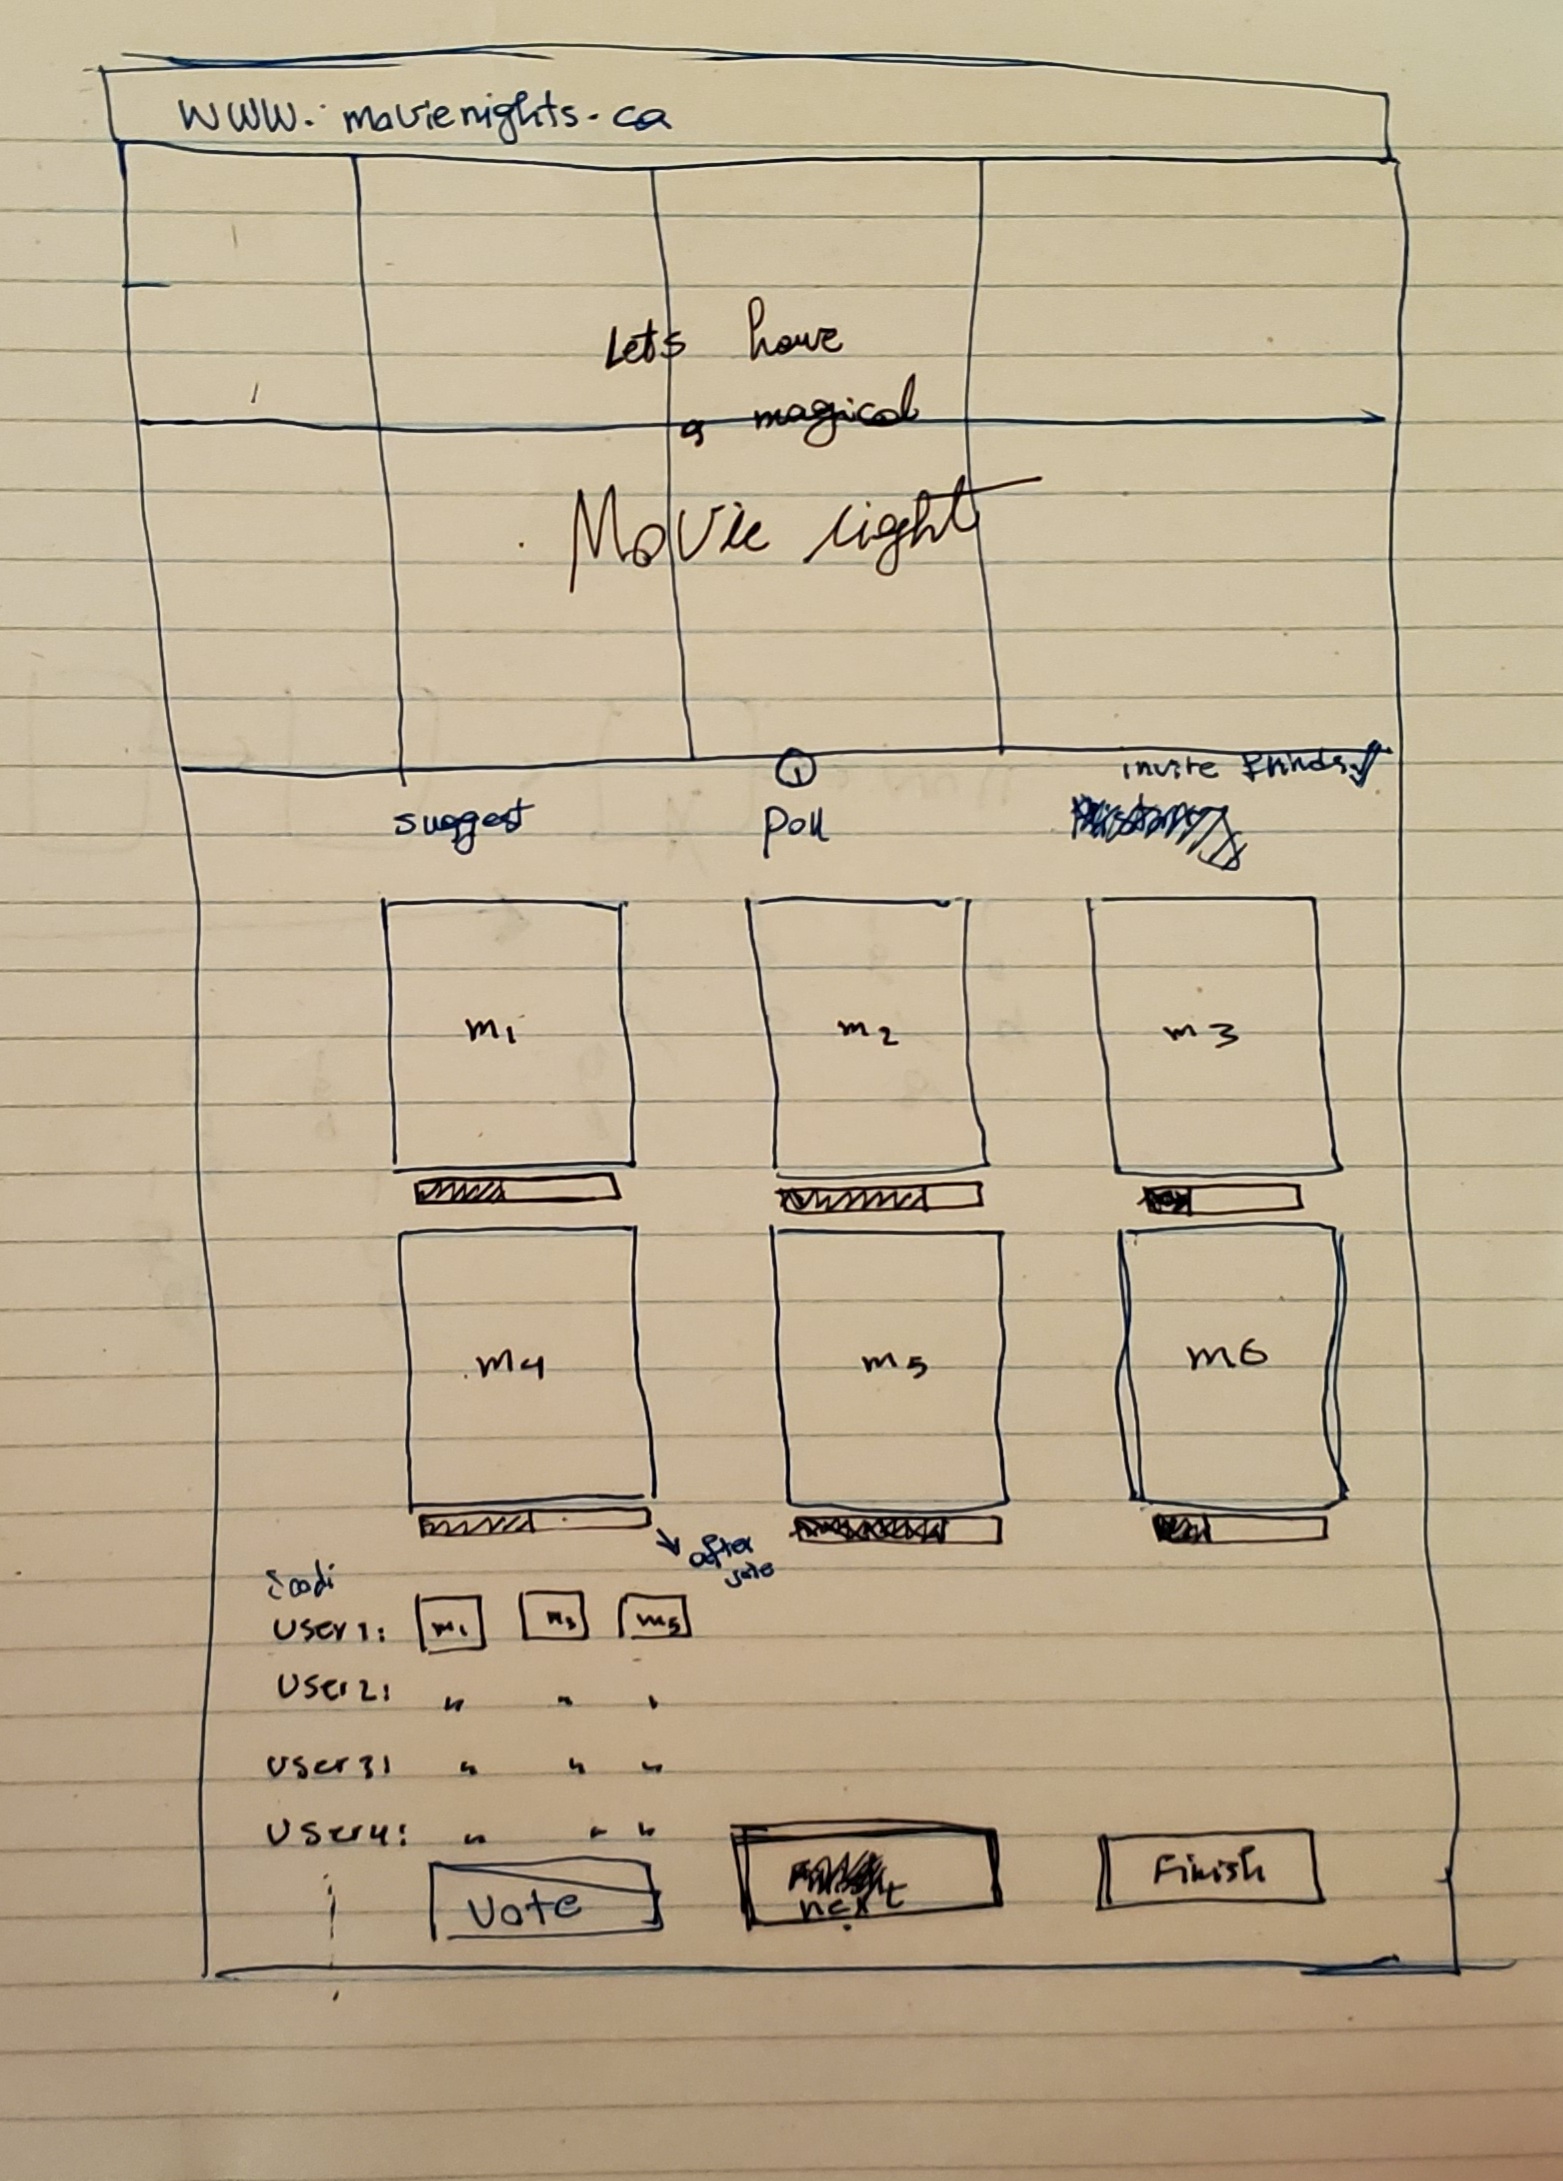 www. movienights.ca
Lets have
a magical
Movie night
invite frinds
suggest
1
Poll
m1
m2
m3
m4
m5
m6
after
vote
User1: m1 m3 m5
User2: " " "
User3: " " "
User4: " " "
Vote
next
Finish